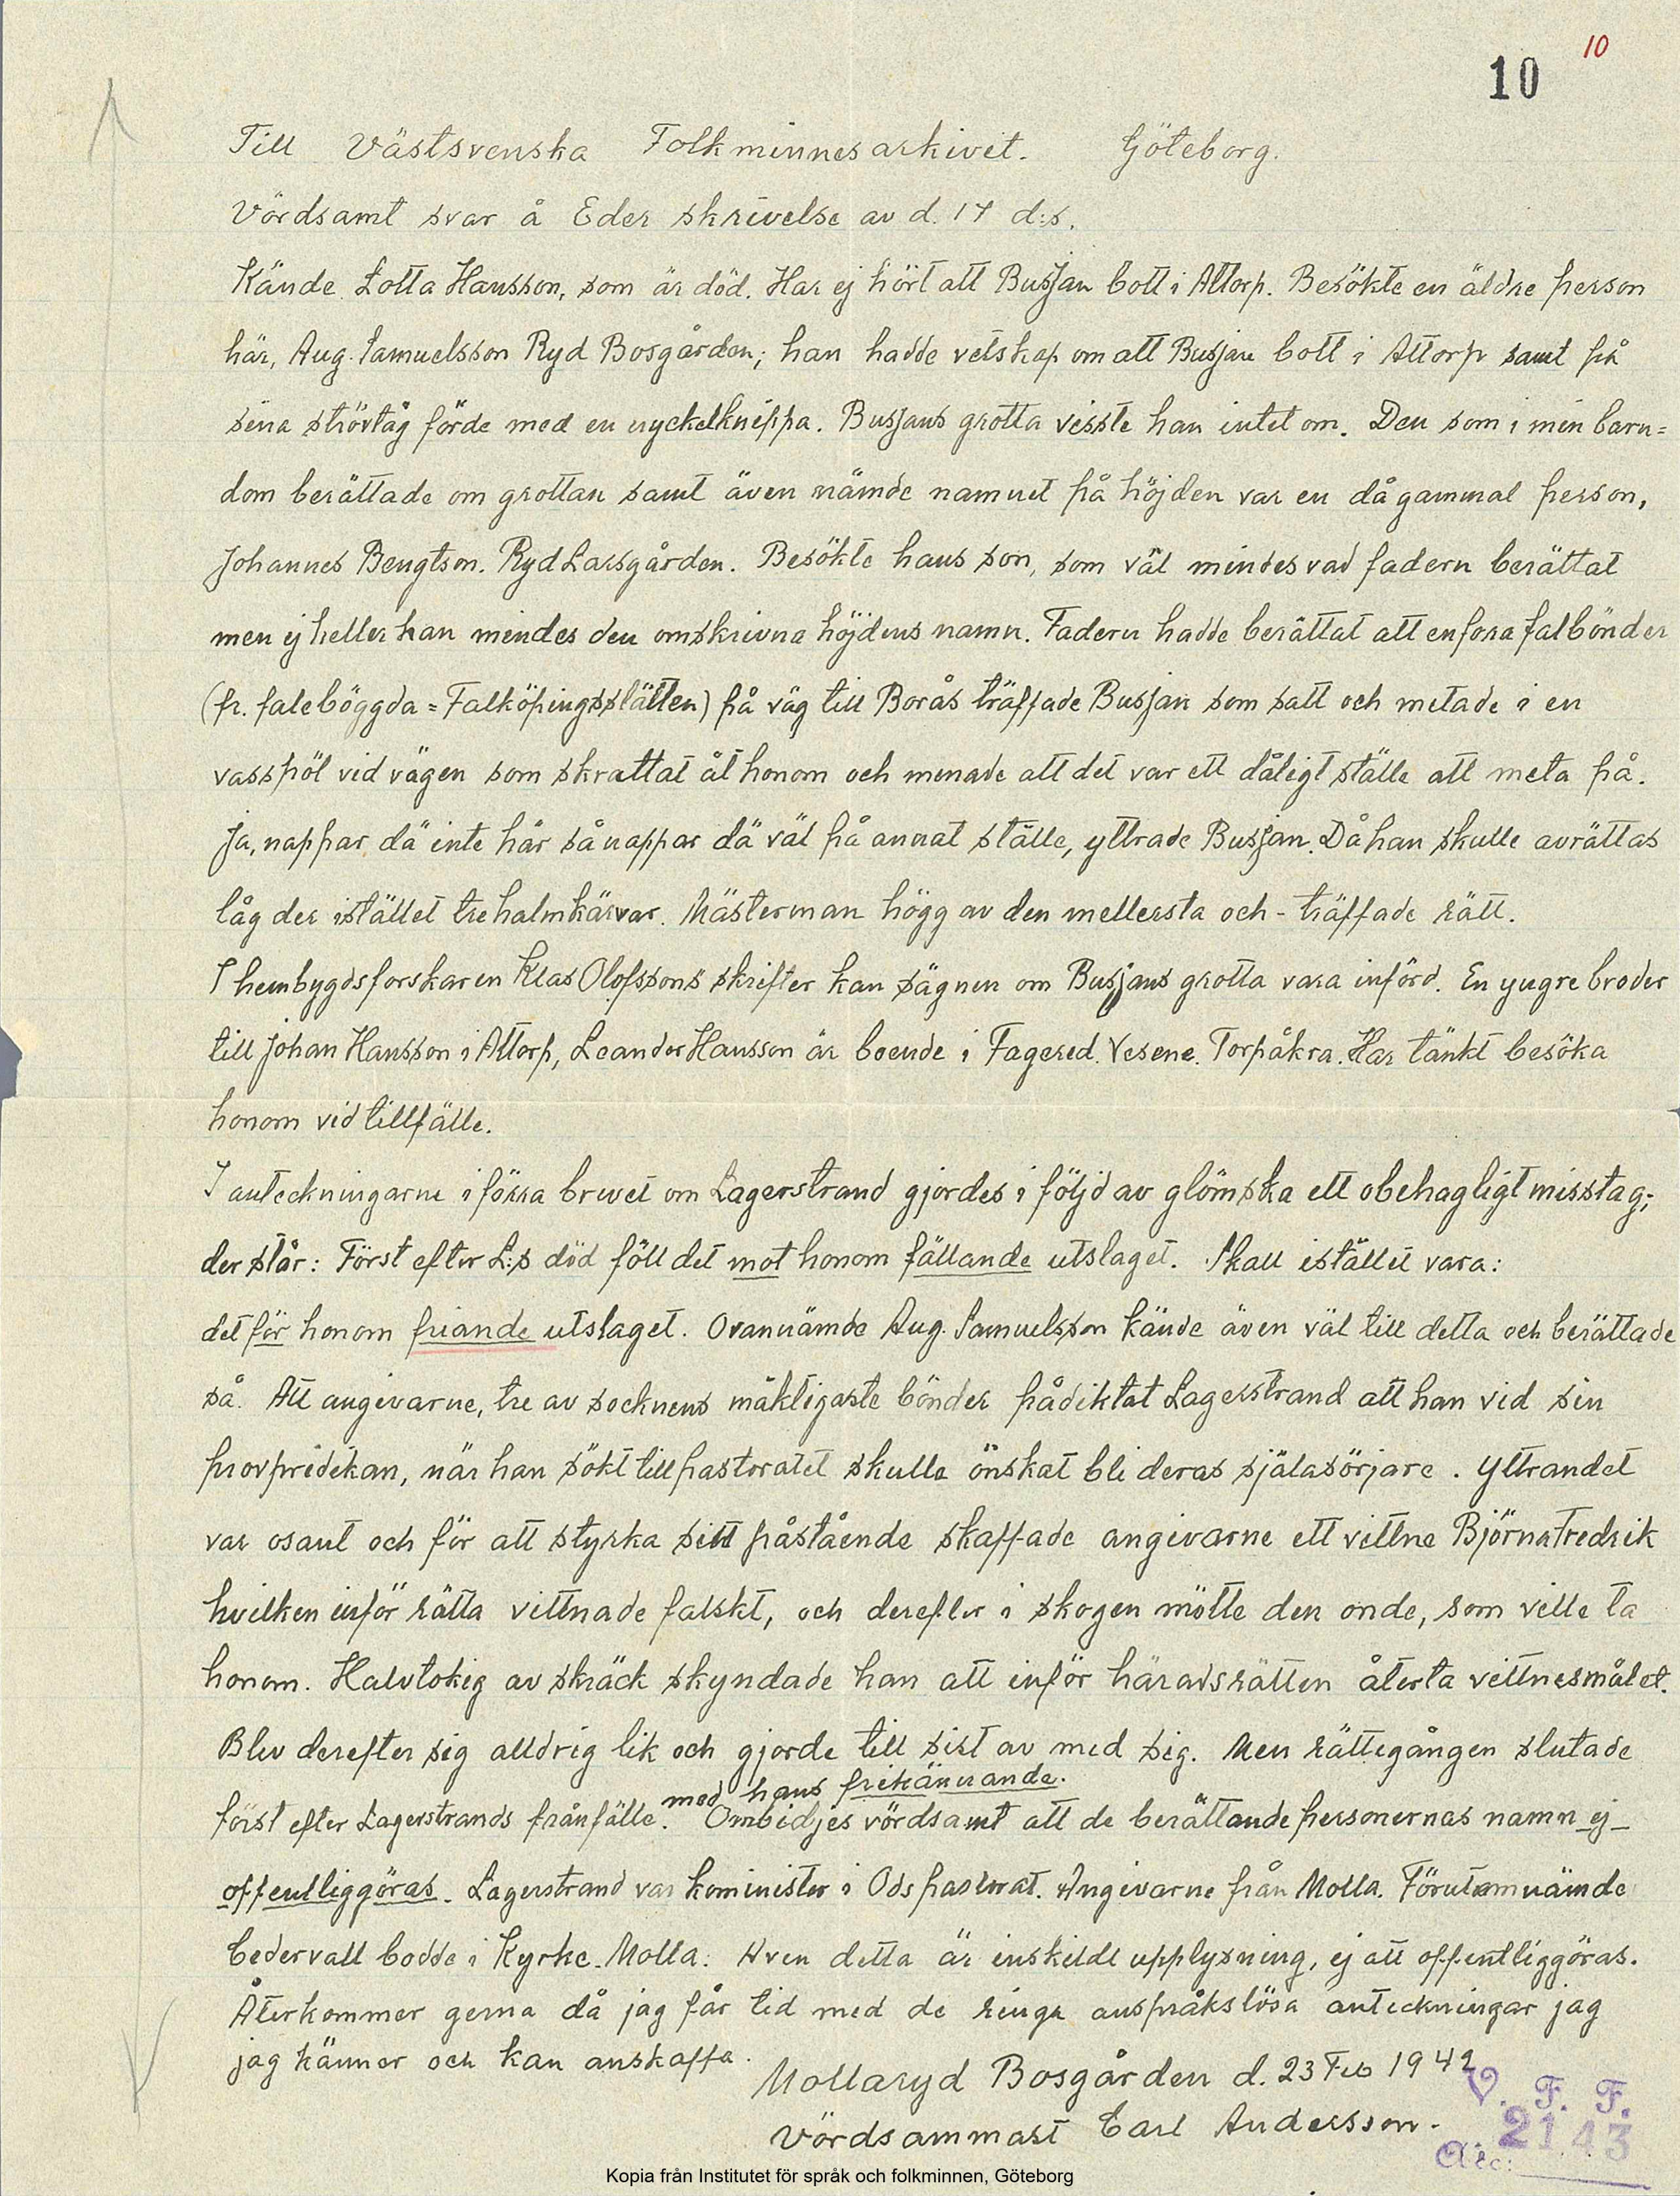 10
10
Till Västsvenska Folkminnesarkivet. Göteborg.
Vördsamt svar å Eder skrivelse av d. 17 d:s.
Kände Lotta Hansson, som är död. Har ej hört att Busjan bott i Attorp. Besökte en äldre person
här, Aug. Samuelsson Ryd Bosgården; han hadde vetskap om att Busjan bott i Attorp samt på
sina strövtåg förde med en nyckelknippa. Busjans grotta visste han intet om. Den som i min barn=
dom berättade om grottan samt även nämde namnet på höjden var en då gammal person,
Johannes Bengtson. Ryd Larsgården. Besökte hans son, som väl mindes vad fadern berättat
men ej heller han mindes den omskrivna höjdens namn. Fadern hadde berättat att en fora falbönder
(fr. faleböggda = Falköpingsslätten) på väg till Borås träffade Busjan som satt och metade i en
vasspöl vid vägen som skrattat åt honom och menade att det var ett dåligt ställe att meta på.
Ja, nappar dä inte här så nappar dä väl på annat ställe, yttrade Busjan. Då han skulle avrättas
låg der istället tre halmkärvar. Mästerman högg av den mellersta och - träffade rätt.
I hembygdsforskaren Klas Olofssons skrifter kan sägnen om Busjans grotta vara införd. En yngre broder
till Johan Hansson i Attorp, Leander Hansson är boende i Fagered. Vesene. Torpåkra. Har tänkt besöka
honom vid tillfälle.
I anteckningarne i förra brevet om Lagerstrand gjordes i följd av glömska ett obehagligt misstag;
der står: Först efter L:s död föll det mot honom fällande utslaget. Skall istället vara:
det för honom friande utslaget. Ovannämde Aug. Samuelsson kände även väl till detta och berättade
så. Att angivarne, tre av socknens mäktigaste bönder pådiktat Lagerstrand att han vid sin
provpredikan, när han sökt till pastoratet skulle önskat bli deras själasörjare. Yttrandet
var osant och för att styrka sitt påstående skaffade angivarne ett vittne Björna Fredrik
hvilken inför rätta vittnade falskt, och derefter i skogen mötte den onde, som ville ta
honom. Halvtokig av skräck skyndade han att inför häradsrätten återta vittnesmålet.
Blev derefter sig alldrig lik och gjorde till sist av med sig. Men rättegången slutade
med hans frikännande.
först efter Lagerstrands frånfälle. Ombidjes vördsamt att de berättande personernas namn ej
offentliggöras. Lagerstrand var kominister i Ods pastorat. Angivarne från Molla. Förutomnämde
Cedervall bodde i Kyrke. Molla. Även detta är enskildt upplysning, ej att offentliggöras.
Återkommer gerna då jag får tid med de ringa anspråkslösa anteckningar jag
jag känner och kan anskaffa.
Mollaryd Bosgården d. 23 Feb 1942
Vördsammast Carl Andersson.
V. F. F.
Acc: 2143
Kopia från Institutet för språk och folkminnen, Göteborg